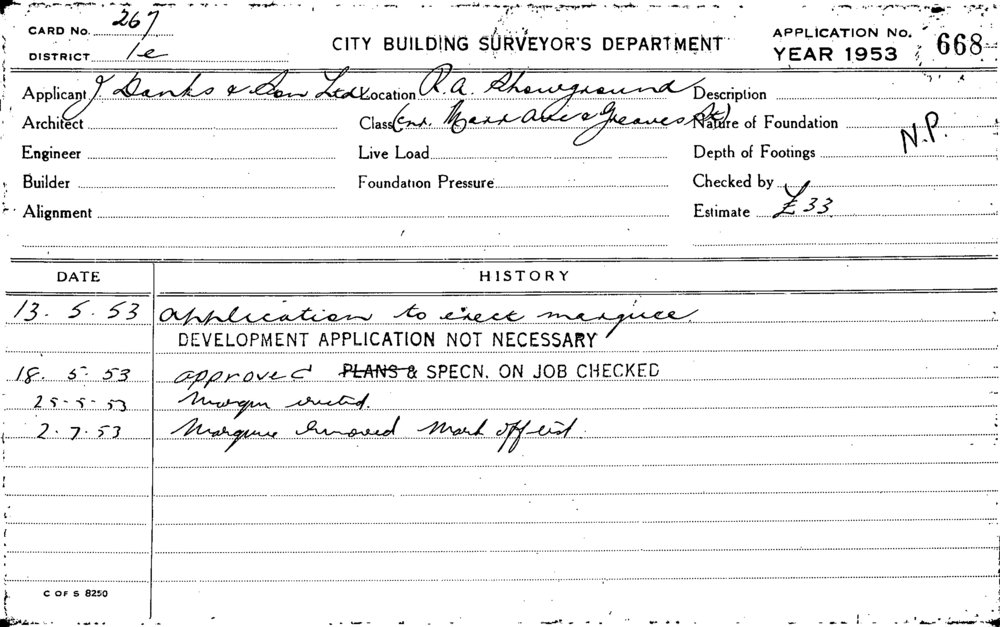 CARD No. 267
DISTRICT 1e
CITY BUILDING SURVEYOR'S DEPARTMENT
APPLICATION No. 668
YEAR 1953
Applicant J Danks & Son Ltd Location R.A. Showground Description
Architect Class (cnr. Ave & Greaves St) Nature of Foundation
Engineer Live Load Depth of Footings N.P.
Builder Foundation Pressure Checked by
Alignment Estimate £33
DATE HISTORY
13.5.53 Application to erect marquee.
DEVELOPMENT APPLICATION NOT NECESSARY
18.5.53 approved PLANS & SPECN. ON JOB CHECKED
25-5-53 erected.
2.7.53 Marquee removed Mark off list.
C OF S 8250